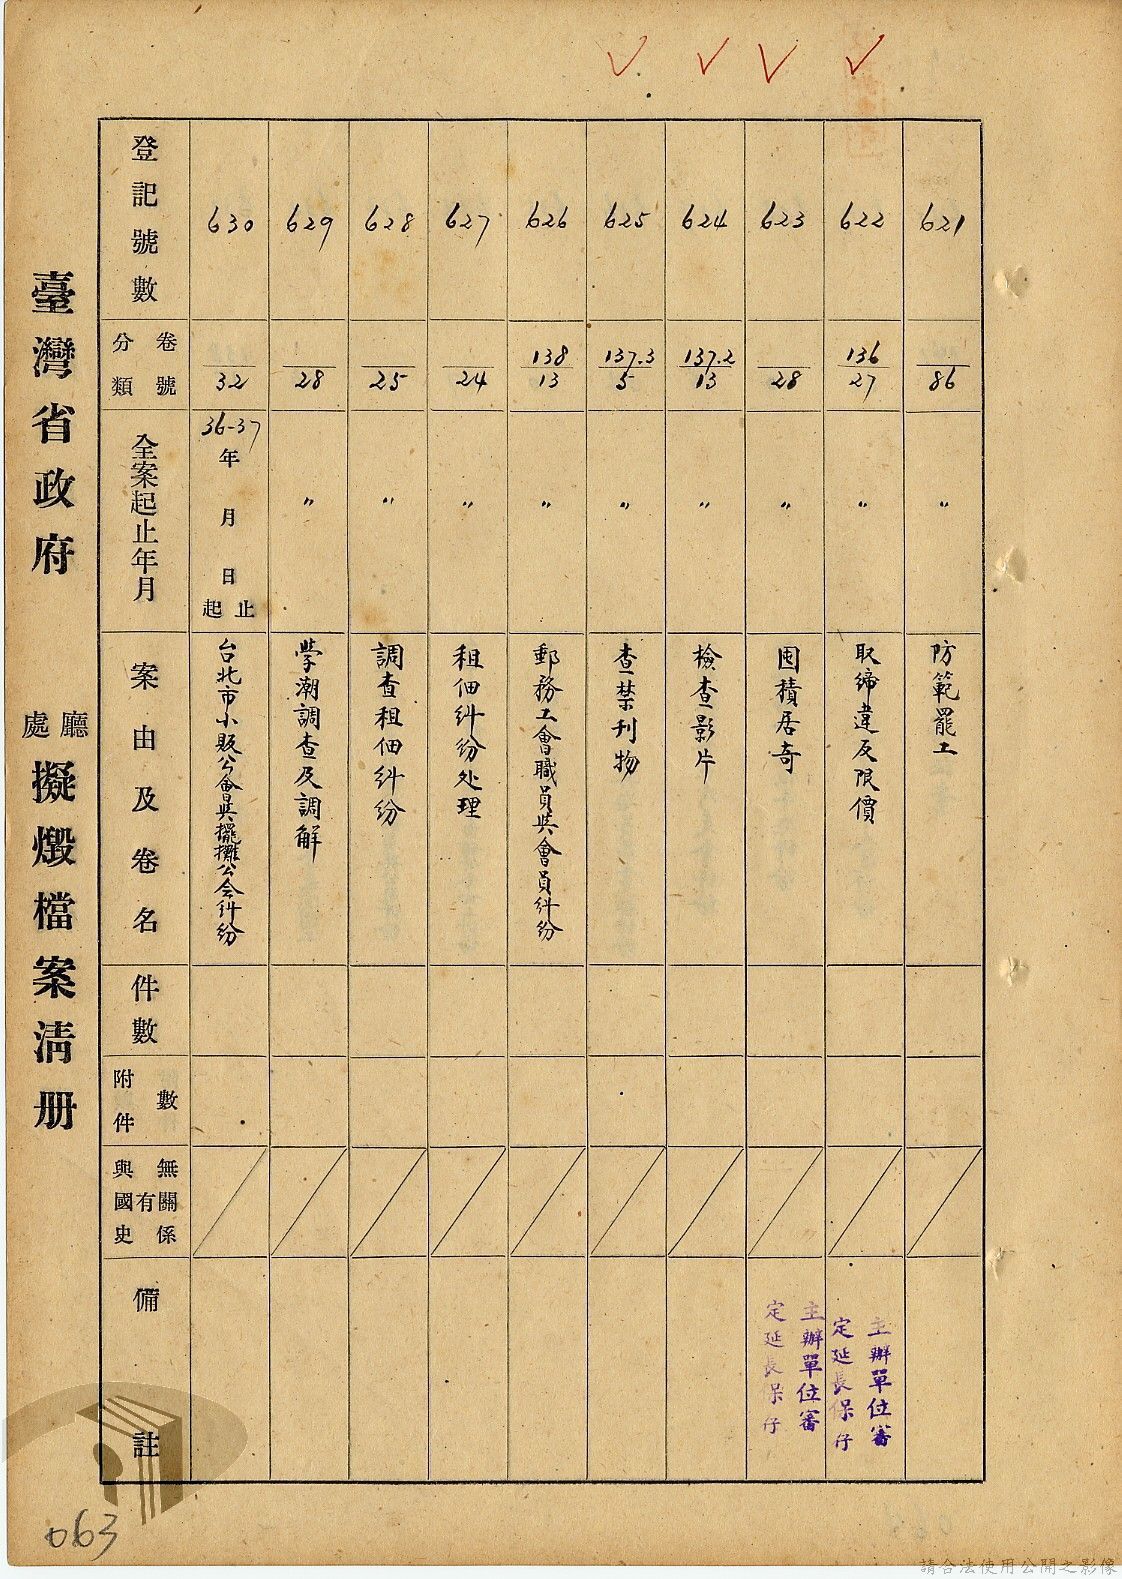 臺灣省政府 廳處 擬燬檔案清册
登記號數
分類 卷號
全案起止年月
案由及卷名
件數
附件數
與國史有無關係
備註
630
32
36-37年 月 日 起止
台北市小販公會與擺攤公会糾纷
629
28
〃
學潮調查及調解
628
25
〃
調查租佃糾纷
627
24
〃
租佃糾纷处理
626
138
13
〃
郵務工會職員與會員糾纷
625
137.3
5
〃
查禁刊物
624
137.2
13
〃
檢查影片
623
28
〃
囤積居奇
主辦單位審
定延長保存
622
136
27
〃
取締違反限價
主辦單位審
定延長保存
621
86
〃
防範罷工
063
請合法使用公開之影像